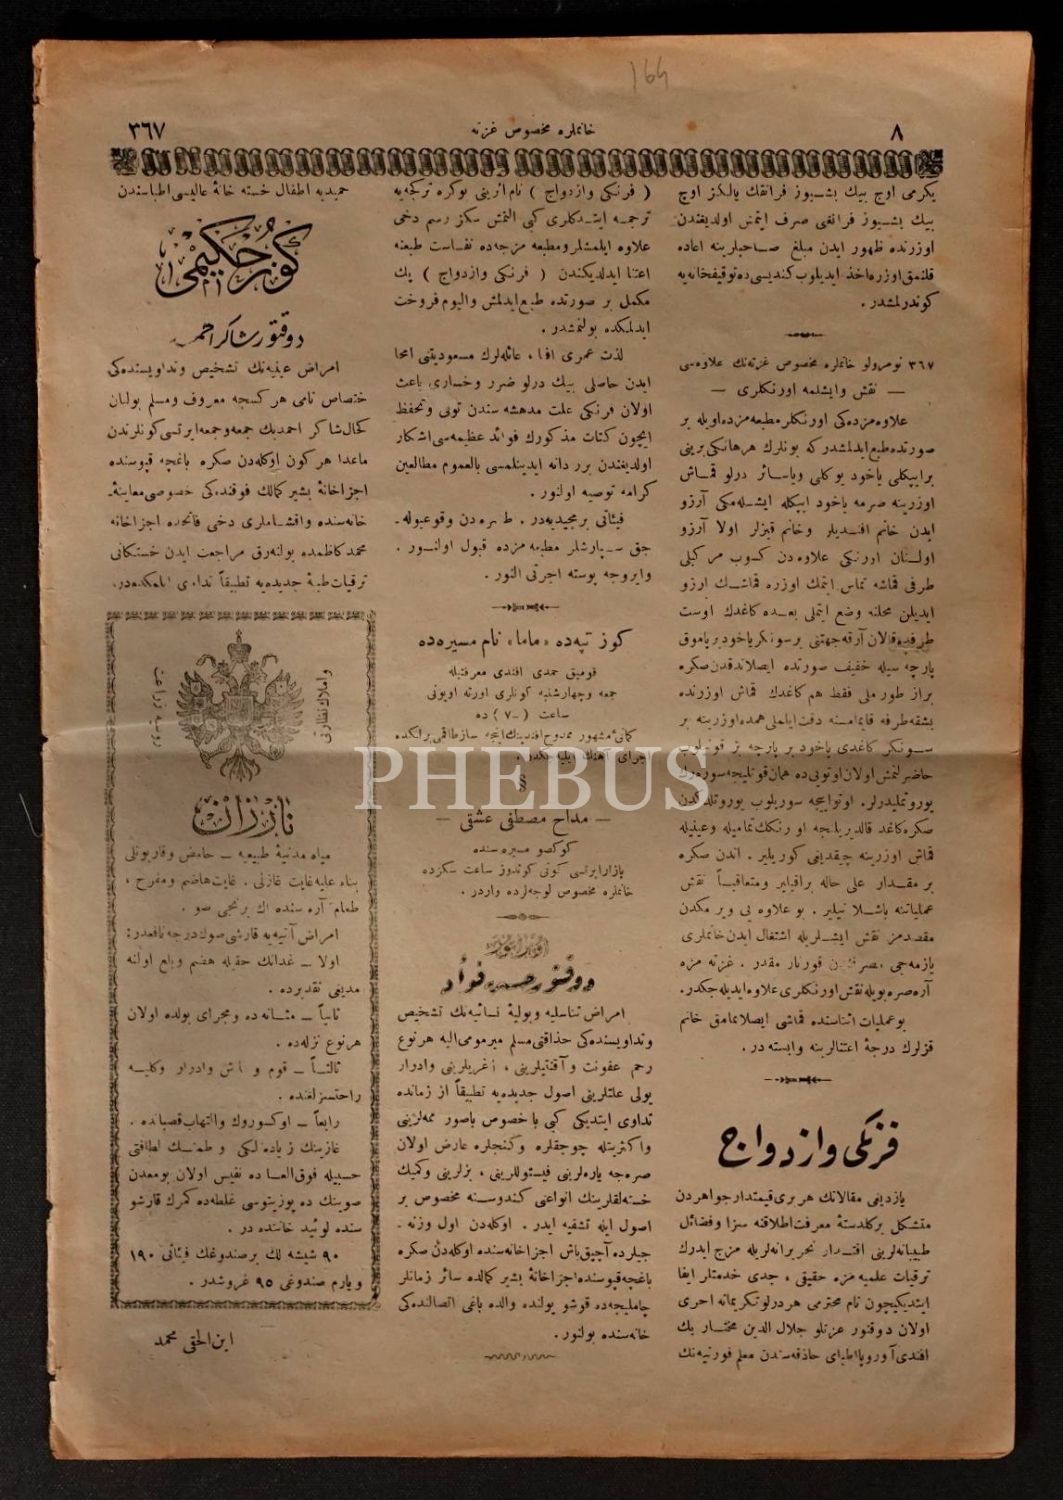 164
٨
خانملره مخصوص غزته
٣٦٧
يكرمى اوچ بيك بشيوز فرانقك يالكز اوچ
بيك بشيوز فرانغى صرف ايتمش اولديغندن
اوزرنده ظهور ايدن مبلغ صاحبلرينه اعاده
قلنمق اوزره اخذ ايديلوب كنديسى ده توقيفخانه يه
كوندرلمشدر .
٣٦٧ نومرولو خانملره مخصوص غزته نك علاوه سى
— نقش وايشلمه اورنكلرى —
علاوه مزده كى اورنكلر مطبعه مزده اويله بر
صورتده طبع ايدلمشدر كه بونلرك هر هانكى برينى
برايپكلى ياخود يوكلى وياسائر درلو قماش
اوزرينه صرمه ياخود ايپكله ايشله مكى آرزو
ايدن خانم افنديلر وخانم قيزلر اولا آرزو
اولنان اورنكى علاوه دن كسوب مركبلى
طرفى قماشه تماس ايتمك اوزره قماشك ارزو
ايديلن محلنه وضع ايتملى بعده كاغدك اوست
طرفنده قالان آرقه جهتنى برسونكر ياخود برپاموق
پارچه سيله خفيف صورتده ايصلاندقدن صكره
براز طورملى فقط هم كاغدك قماش اوزرنده
بشقه طرفه قايمامسنه دقت ايلملى همده اوزرينه بر
سونكر كاغدى ياخود بر پارچه بز
حاضرلنمش اولان اوتويى ده همان قوتليجه سوره رك
يوروتمليدرلر. اوتو اييجه سوريلوب يوروتلدكدن
صكره كاغد قالديريلنجه اورنكك تماميله وعينيله
قماش اوزرينه چيقديغى كوريلير . اندن صكره
بر مقدار على حاله براقيلير ومتعاقباً نقش
عملياتنه باشلانيلير . بو علاوه يى ويرمكدن
مقصدمز نقش ايشلريله اشتغال ايدن خانملرى
يازمه جى مصرفندن قورتارمقدر . غزته مزه
آره صره بويله نقش اورنكلرى علاوه ايديله جكدر.
بوعمليات اثناسنده قماشى ايصلاتمامق خانم
قزلرك درجهٔ اعتنالرينه وابسته در .
فرنكى وازدواج
يازدينى مقالاتك هر برى قيمتدار جواهردن
متشكل بركلدستهٔ معرفت اطلاقنه سزا وفضائل
طبيبانه لرينى اقتدار تحريرانه لريله مزج ايدرك
ترقيات علميه مزه حقيقى ، جدى خدمتلر ايفا
ايتديكيچون نام محترمى هر درلو تكريماته احرى
اولان دوقتور عزتلو جلال الدين مختار بك
افندى آوروپا اطباى حاذقه سندن معلم فورنيه نك
( فرنكى وازدواج ) نام اثرينى بوكره تركجه يه
ترجمه ايتدكلرى كبى التمش سكز رسم دخى
علاوه ايلمشلر ومطبعه مزجه ده نفاست طبعنه
اعتنا ايدلديكندن ( فرنكى وازدواج ) پك
مكمل بر صورتده طبع ايدلمش واليوم فروخت
ايدلمكده بولنمشدر .
لذت عمرى افنا ، عائله لرك مسعوديتنى امحا
ايدن حاصلى بيك درلو ضرر وخسارى باعث
اولان فرنكى علت مدهشه سندن توقى وتحفظ
ايچون كتاب مذكورك فوائد عظيمه سى آشكار
اولديغندن برر دانه ايدينلمسى بالعموم مطالعين
كرامه توصيه اولنور .
فيئاتى برمجيديه در . طشره دن وقوعبوله
جق سپارشلر مطبعه مزده قبول اولنور .
وايروجه پوسته اجرتى النور .
كوز تپه ده «ماما» نام مسيره ده
قوميق حمدى افندى معرفتيله
جمعه وچهارشنبه كونلرى اورته اويونى
ساعت (٧) ده
كمانئ مشهور ممدوح افندينك اينجه ساز طاقمى برلكده
اجراى آهنك ايليه جكدر .
§
— مداح مصطفى عشقى —
كوكصو مسيره سنده
بازارايرتسى كونى كوندوز ساعت سكزده
خانملره مخصوص لوجه لرده واردر .
دوقتور حسين فؤاد
امراض تناسليه وبوليهٔ نسائيه نك تشخيص
وتداويسنده كى حذاقتى مسلم ميرمومى اليه هر نوع
رحم عفونت و آقنتيلرينى ، آغريلرينى وادرار
يولى علتلرينى اصول جديده يه تطبيقاً از زمانده
تداوى ايتديكى كبى باخصوص باصور ممه لرينى
واكثريتله چوجقلره وكنجلره عارض اولان
صره جه ياره لرينى فيستوللرينى ، بزلرينى وكميك
خسته لقلرينك انواعنى كندوسنه مخصوص بر
اصول ايله تشفيه ايدر . اوكله دن اول وزنه
جيلرده آچيق باش اجزاخانه سنده اوكله دن صكره
باغچه قپوسنده اجزاخانهٔ بشير كمالده سائر زمانلر
چامليجه ده قوشو يولنده والده باغى اتصالنده كى
خانه سنده بولنور .
حميديه اطفال خسته خانهٔ عاليسى اطباسندن
كوز حكيمى
دوقتور شاكر احمد
امراض عينيه نك تشخيص وتداويسنده كى
اختصاص تامى هر كسجه معروف ومسلم بولنان
كحال شاكر احمد بك جمعه وجمعه ايرتسى كونلرندن
ماعدا هر كون اوكله دن صكره باغچه قپوسنده
اجزاخانهٔ بشير كمالك فوقنده كى خصوصى معاينه
خانه سنده واقشاملرى دخى فاتحده اجزاخانه
محمد كاظمده بولنه رق مراجعت ايدن خستكانى
ترقيات طبيهٔ جديده يه تطبيقاً تداوى ايلمكده در.
واملاك نظارتى
روسيه زراعت
نارزان
مياه معدنيهٔ طبيعيه — حامض وقاربونلى
بناء عليه غايت غازلى . غايت هاضم ومفرح ،
طعام آره سنده اك برنجى صو .
امراض آتيه يه قارشى صوك درجه نافعدر:
اولا — غدانك حقيله هضم وبلع اولنه
مديغى تقديرده .
ثانياً — مثانه ده ومجراى بولده اولان
هر نوع نزله ده .
ثالثاً — قوم و طاش وادرار وكليه
راحتسزلغنده .
رابعاً — اوكسوروك والتهاب قصباتده .
غازينك زياده لكى و طعمنك لطافتى
حسبيله فوق العاده نفيس اولان بومعدن
صوينك ده پوزيتوسى غلطه ده كمرك قارشو
سنده لوئيد خاننده در .
٩٠ شيشه لك برصندوغك فيئاتى ١٩٠
ويارم صندوغى ٩٥ غروشدر .
ابن الحقى محمد
PHEBUS